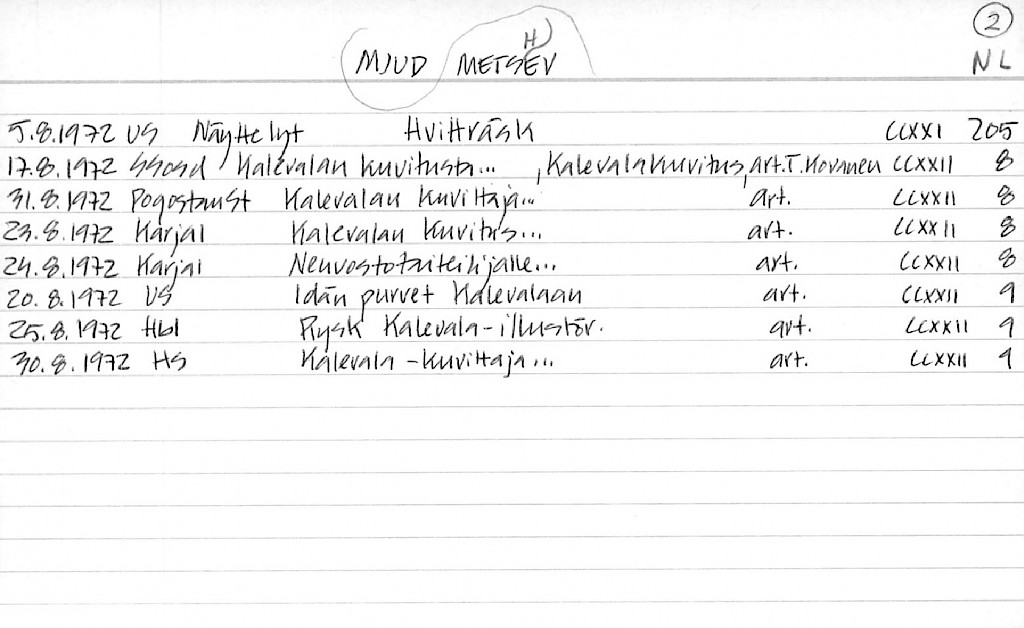 2
MJUD METSHEV NL
5.8.1972 US Näyttelyt Hvitträsk CCXXI 205
17.8.1972 SSosd Kalevalan kuvitusta... , Kalevalakuvitus, art. T. Kovanen CCXXII 8
31.8.1972 PogostanSt Kalevalan kuvittaja... art. CCXXII 8
23.8.1972 Karjal Kalevalan kuvitus... art. CCXXII 8
24.8.1972 Karjal Neuvostotaiteilijalle... art. CCXXII 8
20.8.1972 US Idän purret Kalevalaan art. CCXXII 9
25.8.1972 Hbl Rysk Kalevala-illustör. art. CCXXII 9
30.8.1972 HS Kalevala-kuvittaja... art. CCXXII 9